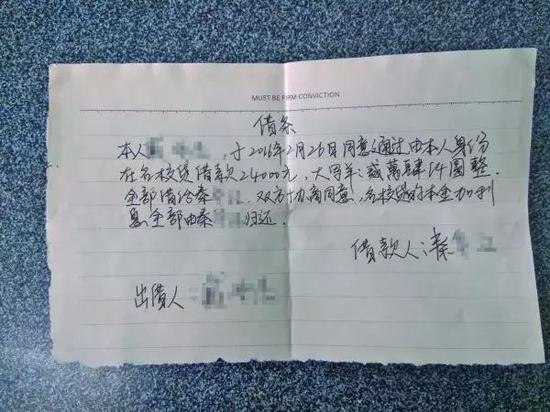 MUST BE FIRM CONVICTION
借条
本人,于2016年2月26日同意通过由本人身份
在名校贷借款24000元,大写:贰萬肆仟圆整.
全部借给秦,双方协商同意,名校贷的本金加利
息全部由秦归还.
借款人:秦
出借人: